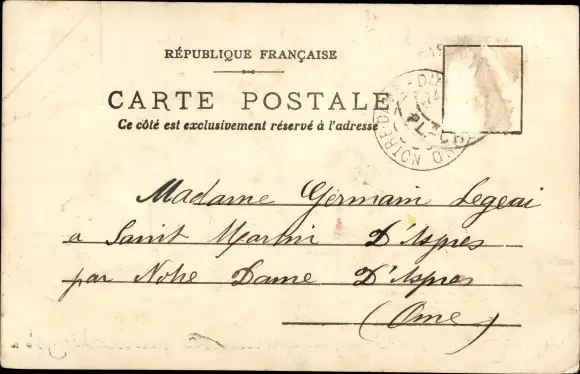 RÉPUBLIQUE FRANÇAISE
CARTE POSTALE
Ce côté est exclusivement réservé à l'adresse
NOTRE-D
Madame Germain Legeai
a Saint Martin D'Aspres
par Notre Dame D'Aspres
(Orne)